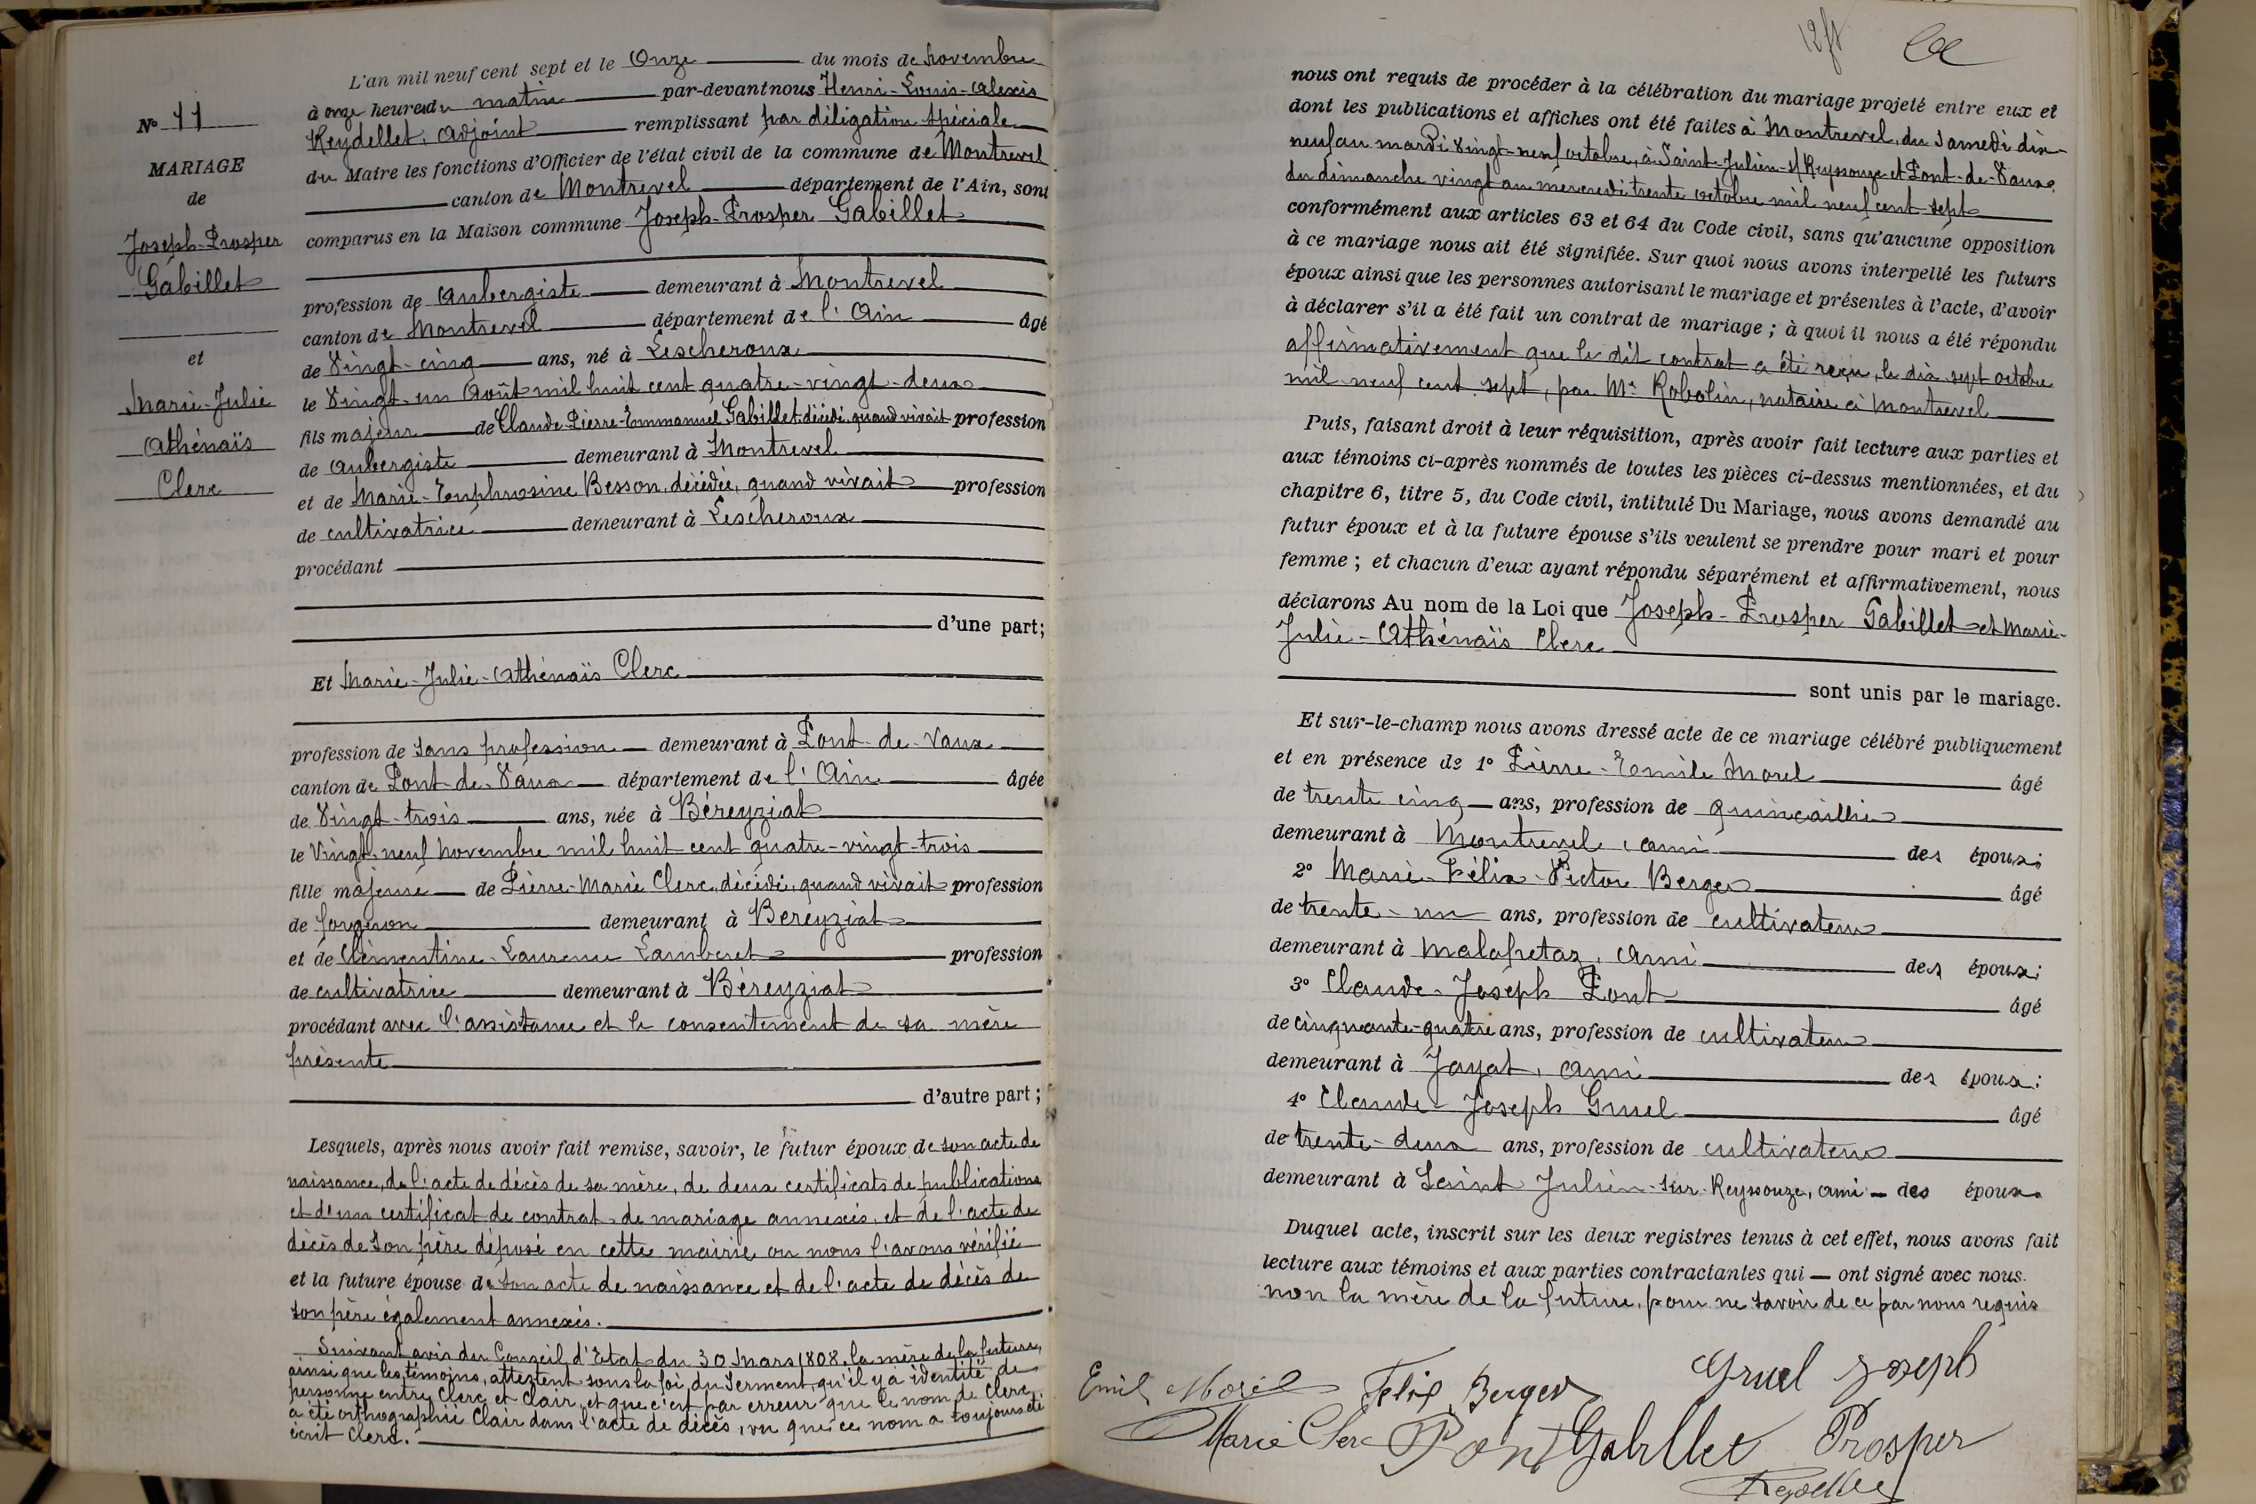 N° 11
MARIAGE
de
Joseph-Prosper
Gabillet
et
Marie-Julie
Athénaïs
Clerc
L'an mil neuf cent sept et le Onze du mois de Novembre
à onze heures du matin par-devant nous Henri-Louis-Alexis
Reydellet, Adjoint remplissant par déligation spéciale
du Maire les fonctions d'Officier de l'état civil de la commune de Montrevel
canton de Montrevel département de l'Ain, sont
comparus en la Maison commune Joseph-Prosper Gabillet
profession de Aubergiste demeurant à Montrevel
canton de Montrevel département de l'Ain âgé
de Vingt-cinq ans, né à Lescheroux
le Vingt-un Août mil huit cent quatre-vingt-deux
fils majeur de Claude-Pierre-Emmanuel Gabillet décédé, quand vivait profession
de aubergiste demeurant à Montrevel
et de Marie-Euphrosine Besson, décédée, quand vivait profession
de cultivatrice demeurant à Lescheroux
procédant
d'une part;
Et Marie-Julie-Athénaïs Clerc
profession de sans profession demeurant à Pont-de-Vaux
canton de Pont-de-Vaux département de l'Ain âgée
de Vingt-trois ans, née à Béreyziat
le Vingt-neuf novembre mil huit cent quatre-vingt-trois
fille majeure de Pierre-Marie Clerc, décédé, quand vivait profession
de forgeron demeurant à Bereyziat
et de Clémentine-Laurence Lamberet profession
de cultivatrice demeurant à Béreyziat
procédant avec l'assistance et le consentement de sa mère
présente
d'autre part;
Lesquels, après nous avoir fait remise, savoir, le futur époux de son acte de
naissance, de l'acte de décès de sa mère, de deux certificats de publications
et d'un certificat de contrat de mariage annexés, et de l'acte de
décès de son père déposé en cette mairie ou nous l'avons vérifié
et la future épouse de son acte de naissance et de l'acte de décès de
son père également annexés.
Suivant avis du Conseil d'Etat du 30 Mars 1808, la mère de la future,
ainsi que les témoins, attestent sous la foi du serment, qu'il y a identité de
personne entre Clerc et Clair, et que c'est par erreur que le nom de Clerc
a été orthographié Clair dans l'acte de décès, vu que ce nom a toujours été
écrit Clerc.
nous ont requis de procéder à la célébration du mariage projeté entre eux et
dont les publications et affiches ont été faites à Montrevel, du samedi dix-
neuf au mardi vingt-neuf octobre, à Saint-Julien-s/Reyssouze et Pont-de-Vaux,
du dimanche vingt au mercredi trente octobre mil neuf cent sept
conformément aux articles 63 et 64 du Code civil, sans qu'aucune opposition
à ce mariage nous ait été signifiée. Sur quoi nous avons interpellé les futurs
époux ainsi que les personnes autorisant le mariage et présentes à l'acte, d'avoir
à déclarer s'il a été fait un contrat de mariage; à quoi il nous a été répondu
affirmativement que le dit contrat a été reçu, le dix sept octobre
mil neuf cent sept, par Me Robolin, notaire à Montrevel
Puis, faisant droit à leur réquisition, après avoir fait lecture aux parties et
aux témoins ci-après nommés de toutes les pièces ci-dessus mentionnées, et du
chapitre 6, titre 5, du Code civil, intitulé Du Mariage, nous avons demandé au
futur époux et à la future épouse s'ils veulent se prendre pour mari et pour
femme; et chacun d'eux ayant répondu séparément et affirmativement, nous
déclarons Au nom de la Loi que Joseph-Prosper Gabillet et Marie-
Julie-Athénaïs Clerc
sont unis par le mariage.
Et sur-le-champ nous avons dressé acte de ce mariage célébré publiquement
et en présence de 1° Pierre-Emile Morel âgé
de trente cinq ans, profession de quincaillier
demeurant à Montrevel, ami des époux;
2° Marie-Félix-Victor Berger âgé
de trente-un ans, profession de cultivateur
demeurant à Malafretaz, ami des époux;
3° Claude-Joseph Pont âgé
de cinquante-quatre ans, profession de cultivateur
demeurant à Jayat, ami des époux;
4° Claude-Joseph Gruel âgé
de trente-deux ans, profession de cultivateur
demeurant à Saint Julien-sur-Reyssouze, ami des époux.
Duquel acte, inscrit sur les deux registres tenus à cet effet, nous avons fait
lecture aux témoins et aux parties contractantes qui ont signé avec nous.
non la mère de la future, pour ne savoir de ce par nous requis
Emile Morel Felix Berger Gruel Joseph
Marie Clerc Pont Gabillet Prosper
Reydellet